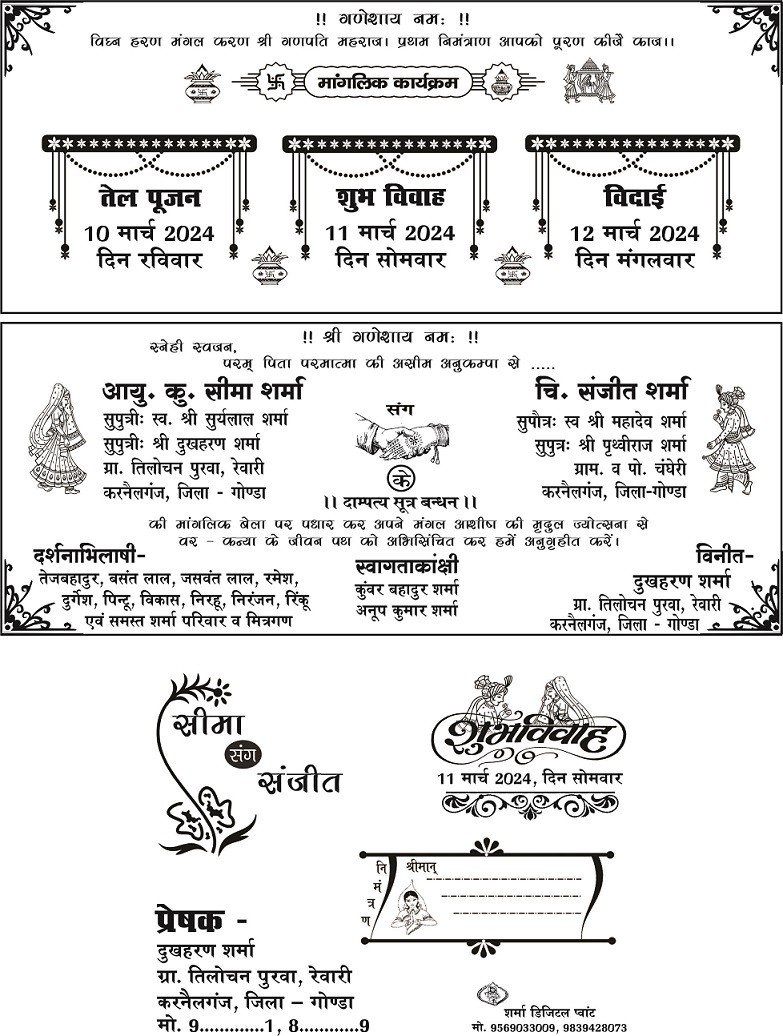 !! गणेशाय नमः !!
विघ्न हरण मंगल करण श्री गणपति महराज। प्रथम निमंत्राण आपको पूरण कीजै काज।।
मांगलिक कार्यक्रम
तेल पूजन
10 मार्च 2024
दिन रविवार
शुभ विवाह
11 मार्च 2024
दिन सोमवार
विदाई
12 मार्च 2024
दिन मंगलवार
!! श्री गणेशाय नमः !!
स्नेही स्वजन,
परम् पिता परमात्मा की असीम अनुकम्पा से .....
आयु. कु. सीमा शर्मा
सुपुत्रीः स्व. श्री सुर्यलाल शर्मा
सुपुत्रीः श्री दुखहरण शर्मा
ग्रा. तिलोचन पुरवा, रेवारी
करनैलगंज, जिला - गोण्डा
संग
चि. संजीत शर्मा
सुपौत्रः स्व श्री महादेव शर्मा
सुपुत्रः श्री पृथ्वीराज शर्मा
ग्राम. व पो. चंघेरी
करनैलगंज, जिला-गोण्डा
के
।। दाम्पत्य सूत्र बन्धन ।।
की मांगलिक बेला पर पधार कर अपने मंगल आशीष की मृदुल ज्योत्सना से
वर - कन्या के जीवन पथ को अभिसिंचित कर हमें अनुग्रहीत करें।
दर्शनाभिलाषी-
तेजबहादुर, बसंत लाल, जसवंत लाल, रमेश,
दुर्गेश, पिन्टू, विकास, निरहू, निरंजन, रिंकू
एवं समस्त शर्मा परिवार व मित्रगण
स्वागताकांक्षी
कुंवर बहादुर शर्मा
अनूप कुमार शर्मा
विनीत-
दुखहरण शर्मा
ग्रा. तिलोचन पुरवा, रेवारी
करनैलगंज, जिला - गोण्डा
सीमा
संग
संजीत
शुभविवाह
11 मार्च 2024, दिन सोमवार
निमंत्रण
श्रीमान्
प्रेषक -
दुखहरण शर्मा
ग्रा. तिलोचन पुरवा, रेवारी
करनैलगंज, जिला – गोण्डा
मो. 9............1, 8............9
शर्मा डिजिटल प्वांट
मो. 9569033009, 9839428073